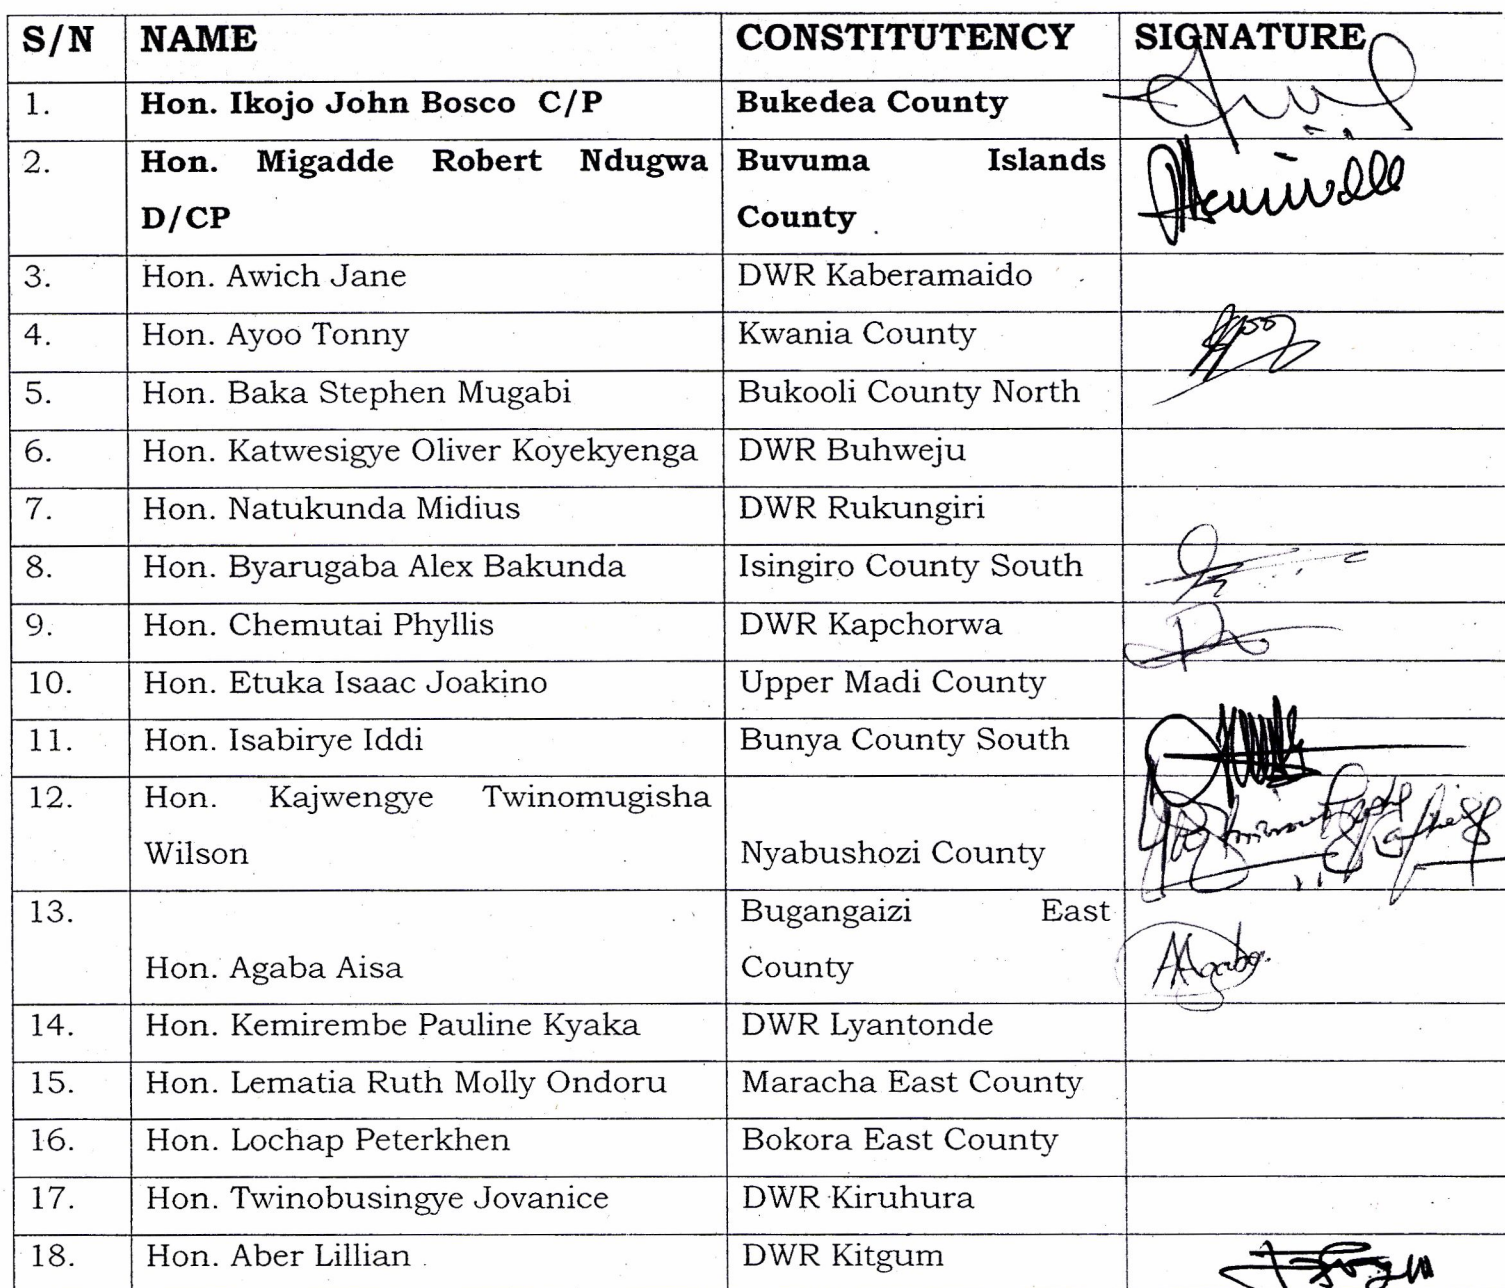 S/N NAME CONSTITUTENCY SIGNATURE
1. Hon. Ikojo John Bosco C/P Bukedea County
2. Hon. Migadde Robert Ndugwa Buvuma Islands
D/CP County
3. Hon. Awich Jane DWR Kaberamaido
4. Hon. Ayoo Tonny Kwania County
5. Hon. Baka Stephen Mugabi Bukooli County North
6. Hon. Katwesigye Oliver Koyekyenga DWR Buhweju
7. Hon. Natukunda Midius DWR Rukungiri
8. Hon. Byarugaba Alex Bakunda Isingiro County South
9. Hon. Chemutai Phyllis DWR Kapchorwa
10. Hon. Etuka Isaac Joakino Upper Madi County
11. Hon. Isabirye Iddi Bunya County South
12. Hon. Kajwengye Twinomugisha
Wilson Nyabushozi County
13. Bugangaizi East
Hon. Agaba Aisa County
14. Hon. Kemirembe Pauline Kyaka DWR Lyantonde
15. Hon. Lematia Ruth Molly Ondoru Maracha East County
16. Hon. Lochap Peterkhen Bokora East County
17. Hon. Twinobusingye Jovanice DWR Kiruhura
18. Hon. Aber Lillian DWR Kitgum